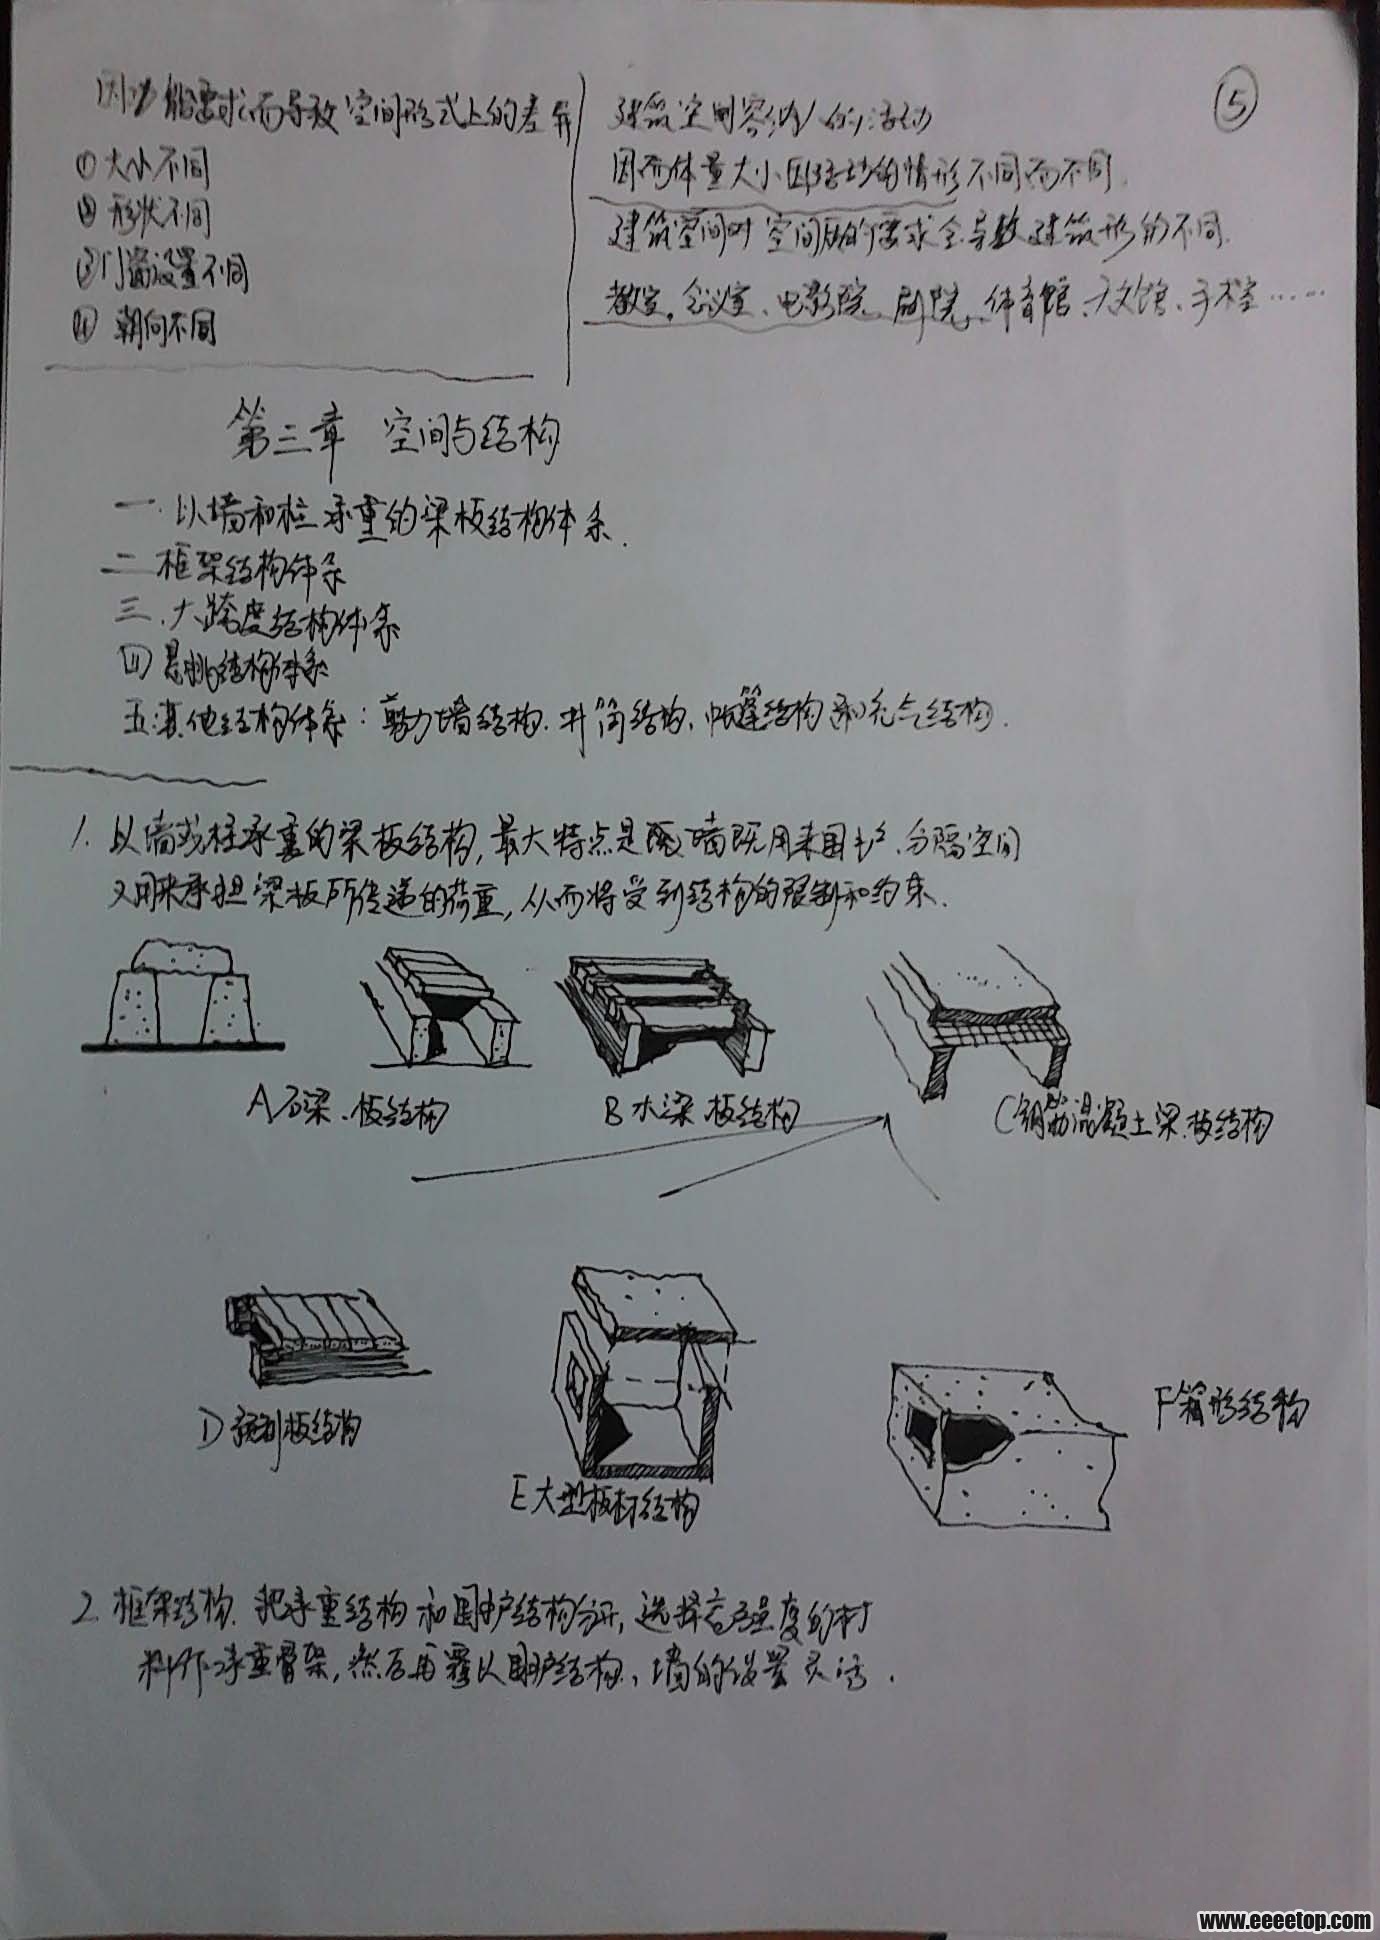 因功能要求而导致空间形式上的差异
①大小不同
②形状不同
③门窗设置不同
④朝向不同
建筑空间容纳人的活动
因而体量大小因活动的情形不同而不同.
建筑空间对空间的要求会导致建筑形的不同.
教室,会议室、电影院、剧院、体育馆、天文馆、手术室……
⑤
第三章 空间与结构
一.以墙和柱承重的梁板结构体系.
二框架结构体系
三.大跨度结构体系
四悬挑结构体系
五.其他结构体系:剪力墙结构.井筒结构、帐篷结构和充气结构.
1.以墙或柱承重的梁板结构,最大特点是墙既用来围护、分隔空间
又用来承担梁板所传递的荷重,从而将受到结构的限制和约束.
A石梁、板结构
B木梁、板结构
C钢筋混凝土梁、板结构
D预制板结构
E大型板材结构
F箱形结构
2.框架结构.把承重结构和围护结构分开,选择高强度的材
料作承重骨架,然后再覆以围护结构、墙的设置灵活.
www.eeeetop.com